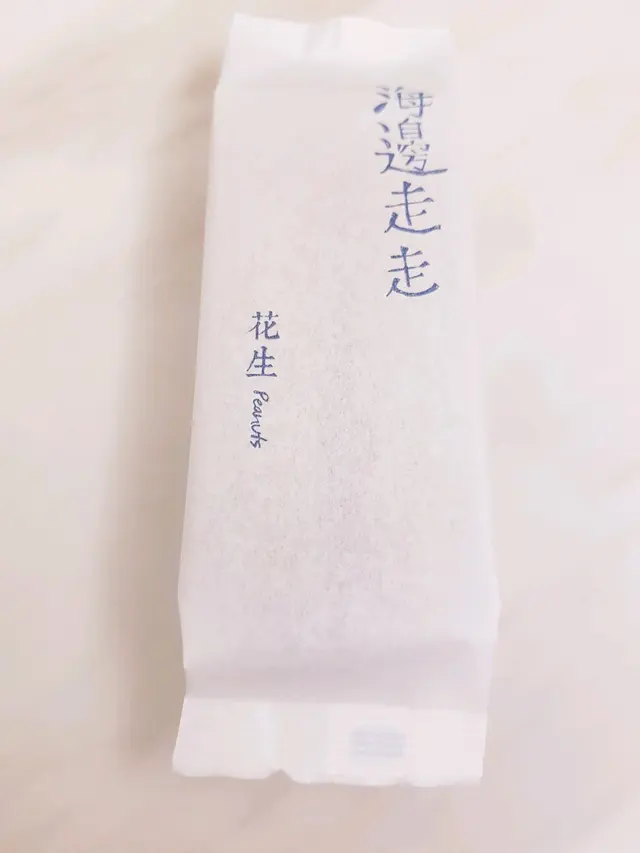 海邊走走
花生 Peanuts